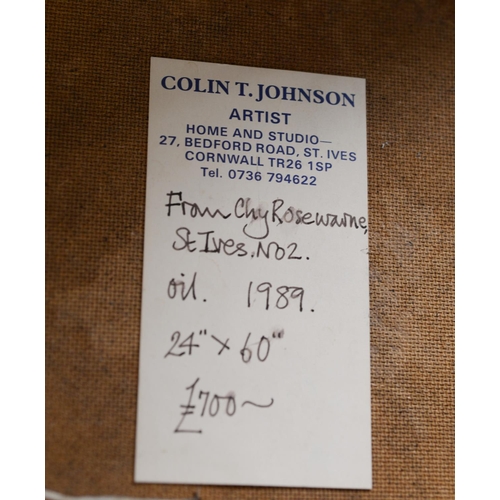 COLIN T. JOHNSON
ARTIST
HOME AND STUDIO—
27, BEDFORD ROAD, ST. IVES
CORNWALL TR26 1SP
Tel. 0736 794622
From Chy Rosewarne,
St Ives. No2.
oil. 1989.
24" x 60"
£700~